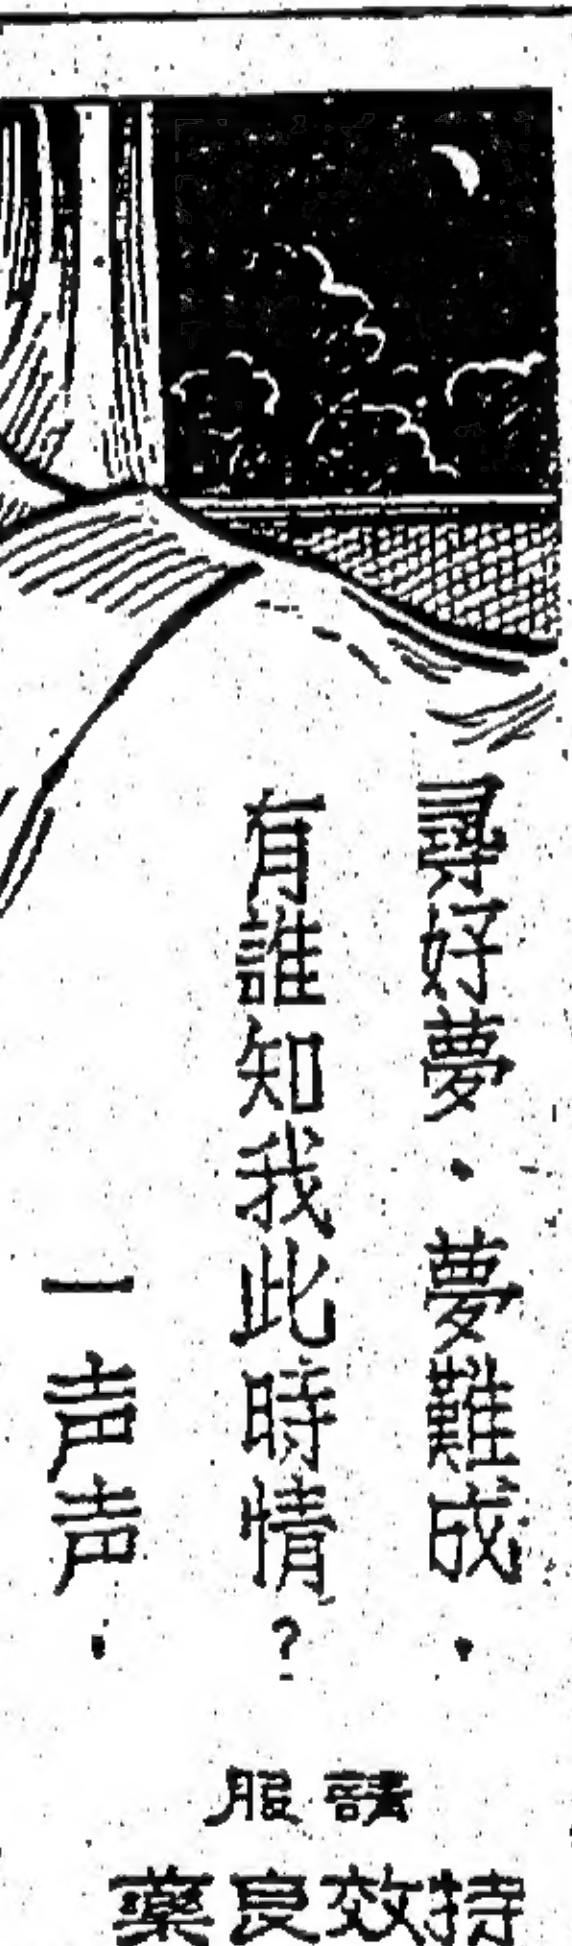 尋好夢．夢難成．
有誰知我此時情？
一声声．
請服
特效良藥